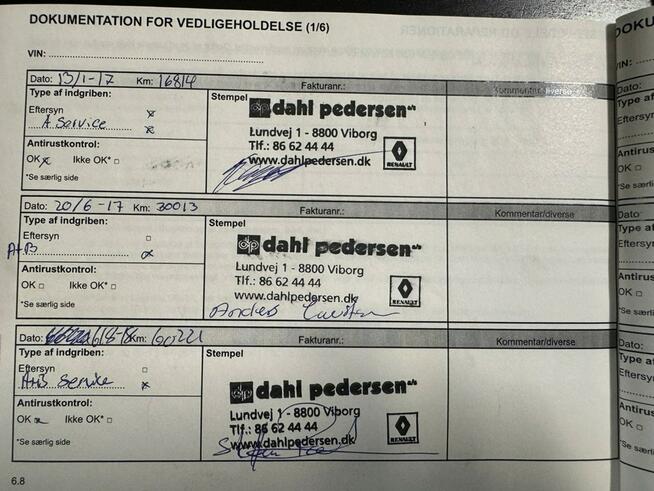 DOKUMENTATION FOR VEDLIGEHOLDELSE (1/6)
VIN:
Dato: 13/1-17 Km: 16814 Fakturanr.: Kommentar/diverse
Type af indgriben: Stempel
Eftersyn x
A Service x
Antirustkontrol:
OK x Ikke OK* □
*Se særlig side
dp dahl pedersen a/s
Lundvej 1 - 8800 Viborg
Tlf.: 86 62 44 44
www.dahlpedersen.dk
RENAULT
Dato: 20/6-17 Km: 30013 Fakturanr.: Kommentar/diverse
Type af indgriben: Stempel
Eftersyn □
A+B x
Antirustkontrol:
OK □ Ikke OK* □
*Se særlig side
dp dahl pedersen a/s
Lundvej 1 - 8800 Viborg
Tlf.: 86 62 44 44
www.dahlpedersen.dk
RENAULT
Anders
Dato: 6/8-18 Km: 60221 Fakturanr.: Kommentar/diverse
Type af indgriben: Stempel
Eftersyn □
A+B Service x
Antirustkontrol:
OK x Ikke OK* □
*Se særlig side
dp dahl pedersen a/s
Lundvej 1 - 8800 Viborg
Tlf.: 86 62 44 44
www.dahlpedersen.dk
RENAULT
6.8
DOKU
VIN:
Dato:
Type af
Eftersyn
Antirus
OK □
*Se sæ
Dato:
Type af
Eftersy
Antirus
OK □
*Se sær
Dato:
Type a
Eftersy
Antiru
OK □
*Se sær